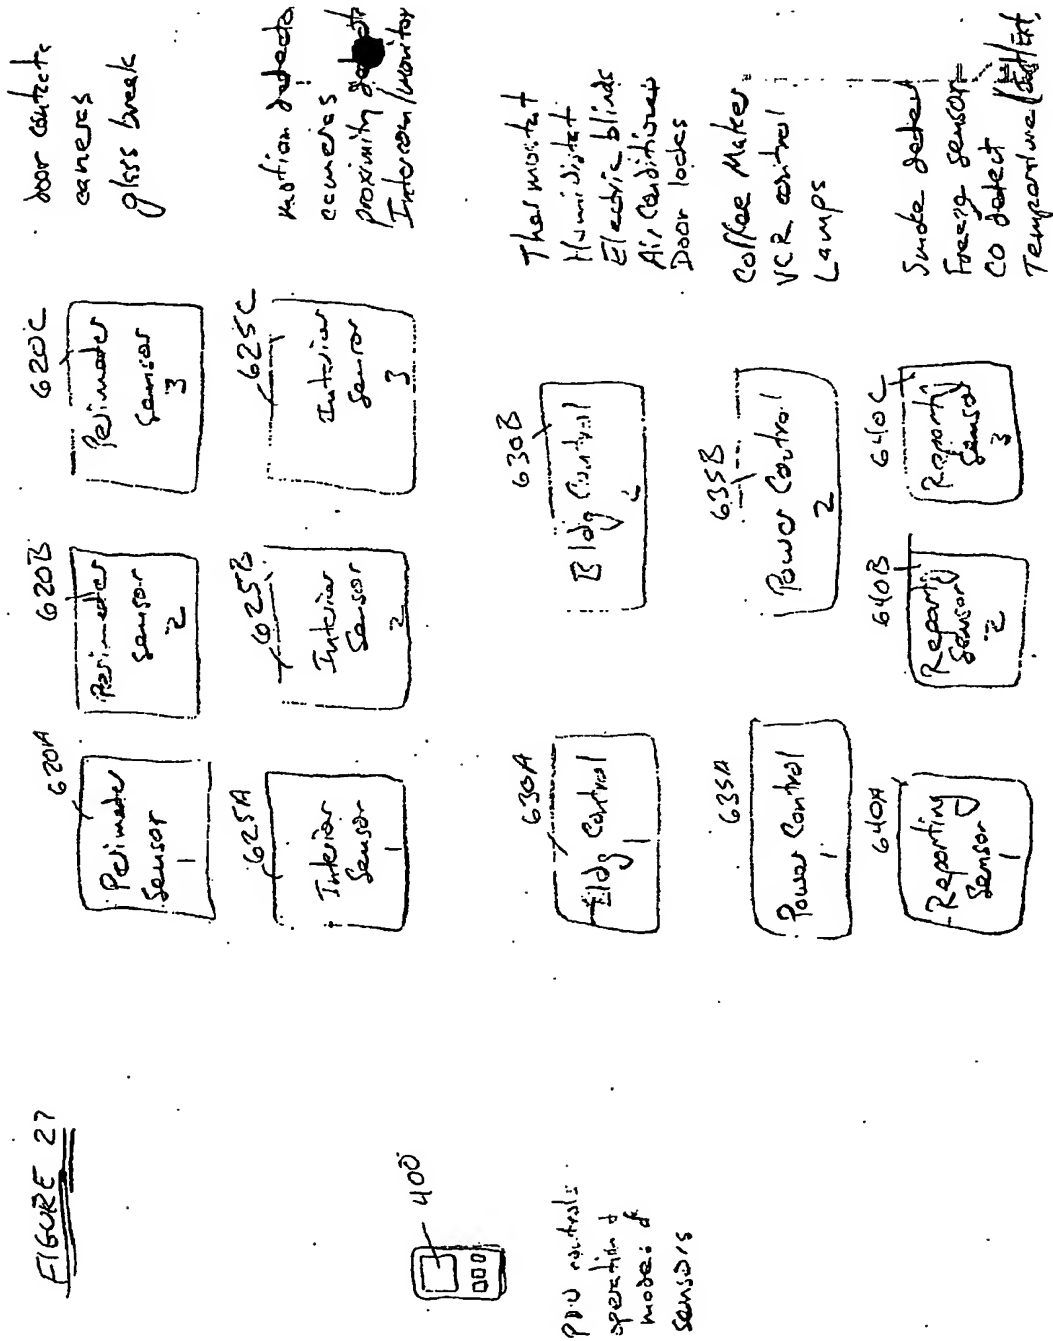 FIGURE 27
620A
Perimeter
Sensor
1
620B
Perimeter
Sensor
2
620C
Perimeter
Sensor
3
door contacts
cameras
glass break
625A
Interior
Sensor
1
625B
Interior
Sensor
2
625C
Interior
Sensor
3
motion detector
cameras
proximity
Intercom/monitor
400
PDU controls
operation &
modes of
sensors
630A
Bldg Control
1
630B
Bldg Control
Thermostat
Humidistat
Electric blinds
Air Conditioner
Door locks
635A
Power Control
1
635B
Power Control
2
Coffee Maker
VCR control
Lamps
640A
Reporting
Sensor
1
640B
Reporting
Sensor
2
640C
Reporting
Sensor
3
Smoke detect
Freeze sensor
CO detect
Temperature Int/Ext.